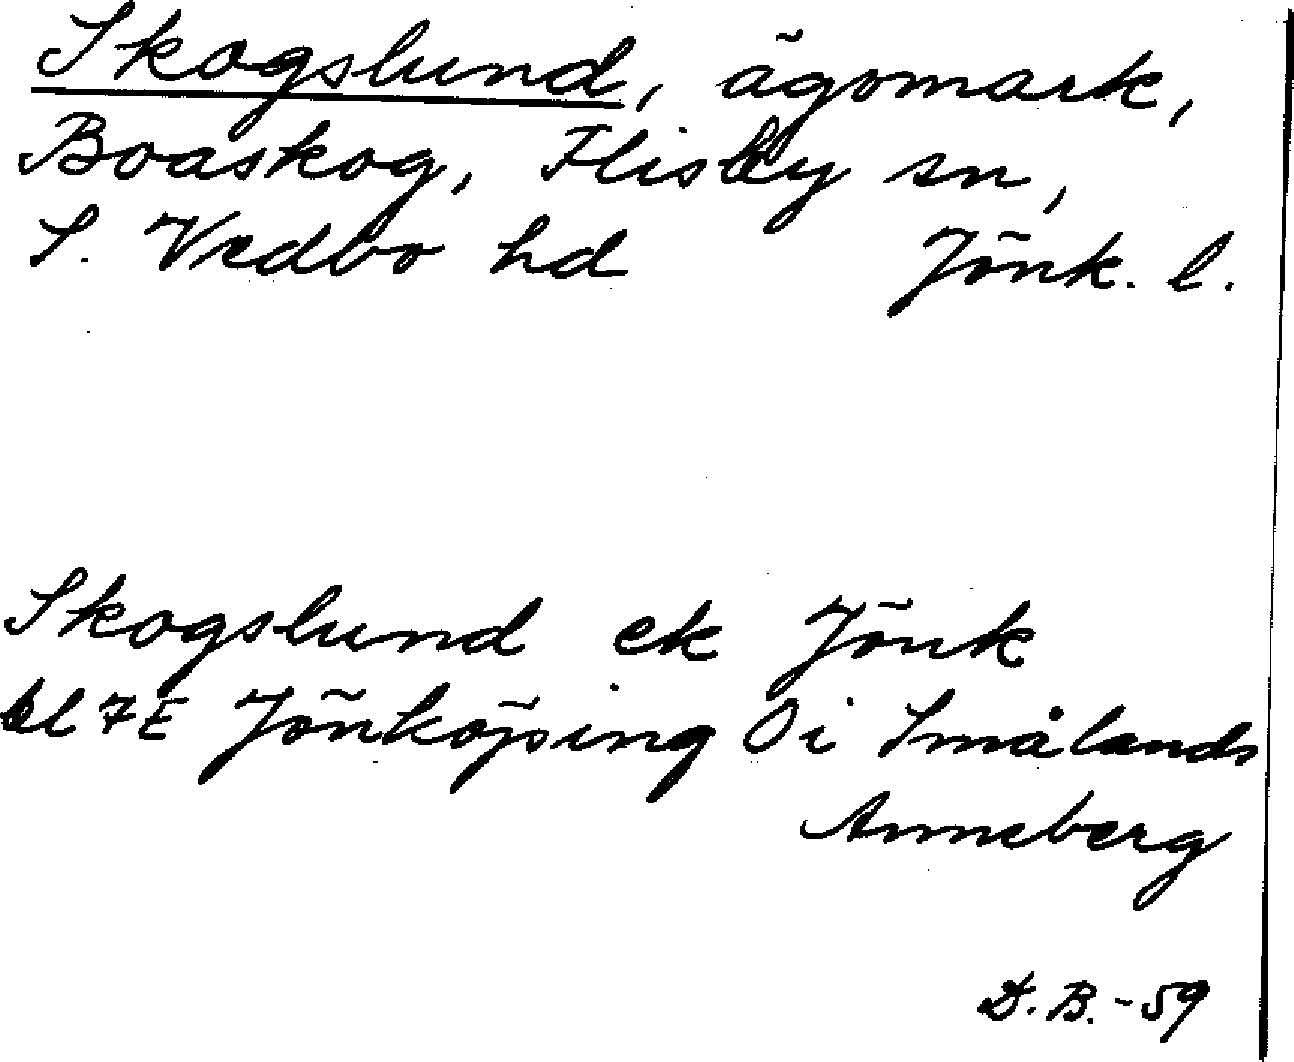 Skogslund, ägomark,
Boaskog, Flisby sn,
S. Vedbo hd Jönk. l.
Skogslund ek Jönk
bl 7E Jönköping Öi Smålands
Anneberg
D.B.-59